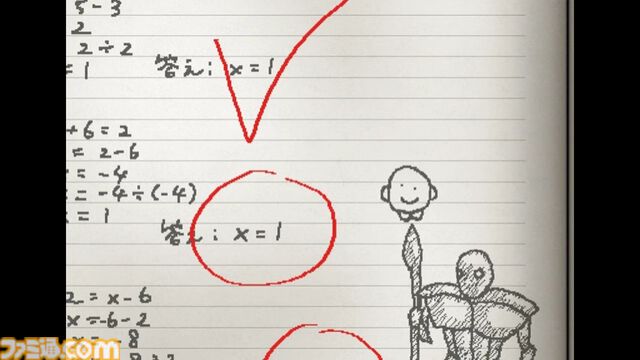 5 - 3
2
2 ÷ 2
= 1
答え: x = 1
+ 6 = 2
= 2 - 6
= -4
= -4 ÷ (-4)
x = 1
答え: x = 1
2 = x - 6
x = -6 - 2
8
ファミ通.com